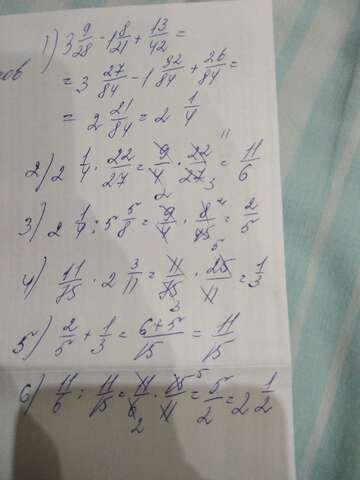 1) 3 9/28 - 1 8/21 + 13/42 =
= 3 27/84 - 1 32/84 + 26/84 =
= 2 21/84 = 2 1/4
2) 2 1/4 · 22/27 = 9/4 · 22/27 = 11/6
3) 2 1/4 : 5 5/8 = 9/4 · 8/45 = 2/5
4) 11/85 · 2 3/11 = 11/85 · 25/11 = 1/3
5) 2/5 + 1/3 = 6+5/15 = 11/15
6) 11/6 : 11/15 = 11/6 · 15/11 = 5/2 = 2 1/2